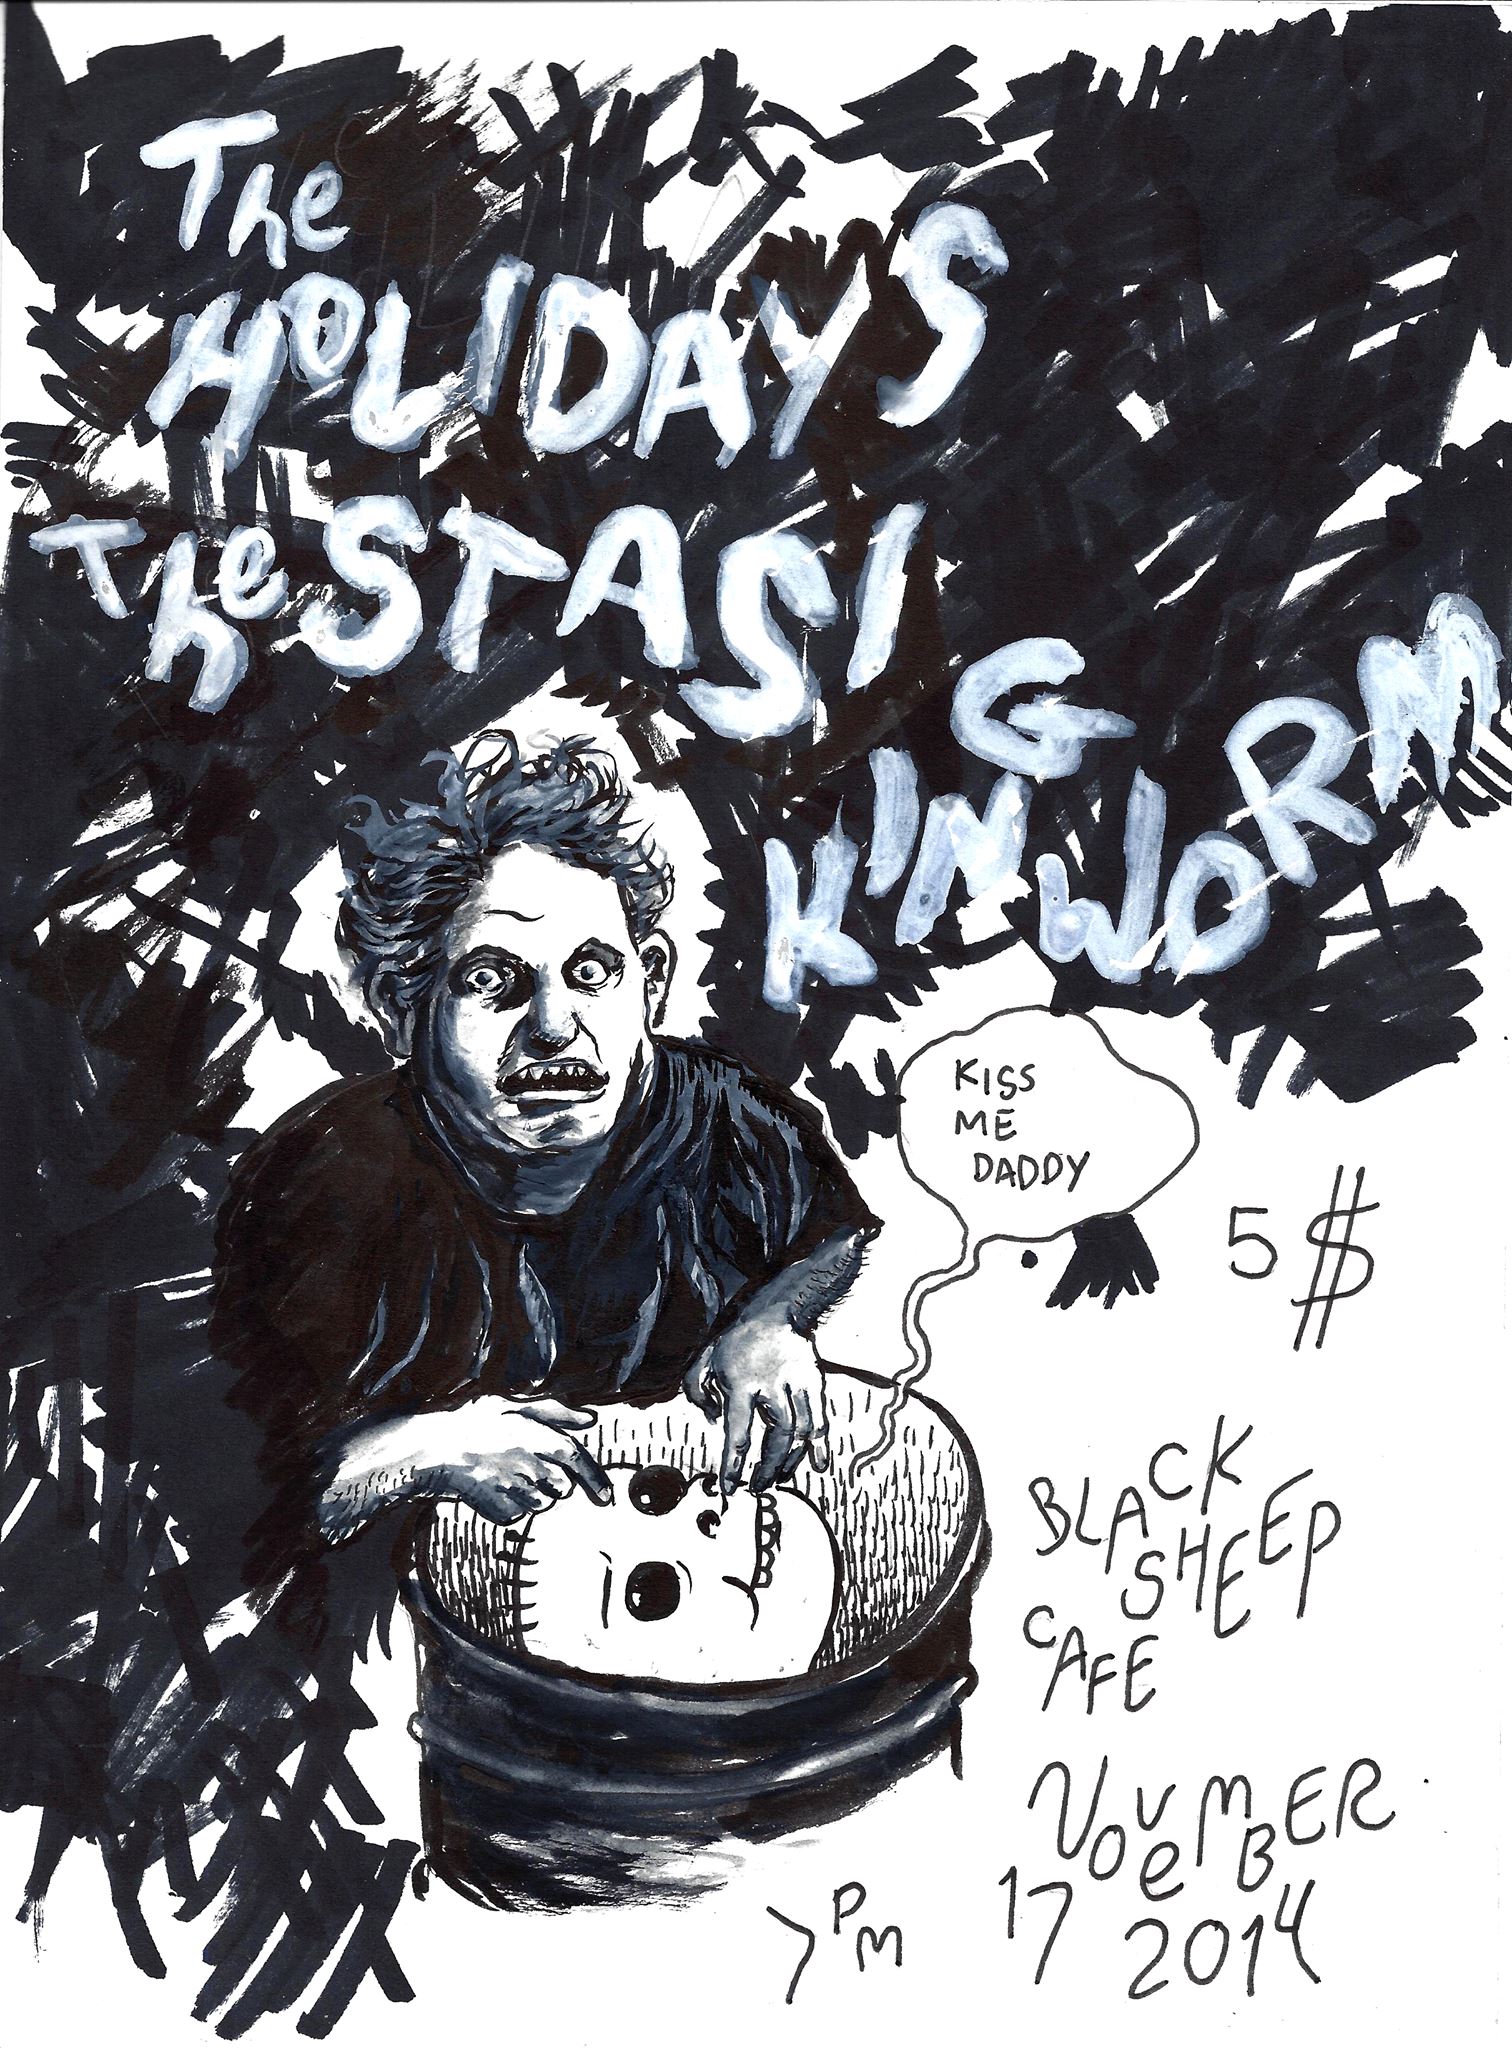 The
HOLIDAYS
The STASI
KING WORM
KISS
ME
DADDY
5$
BLACK
SHEEP
CAFE
NOVEMBER
7PM
17
2014